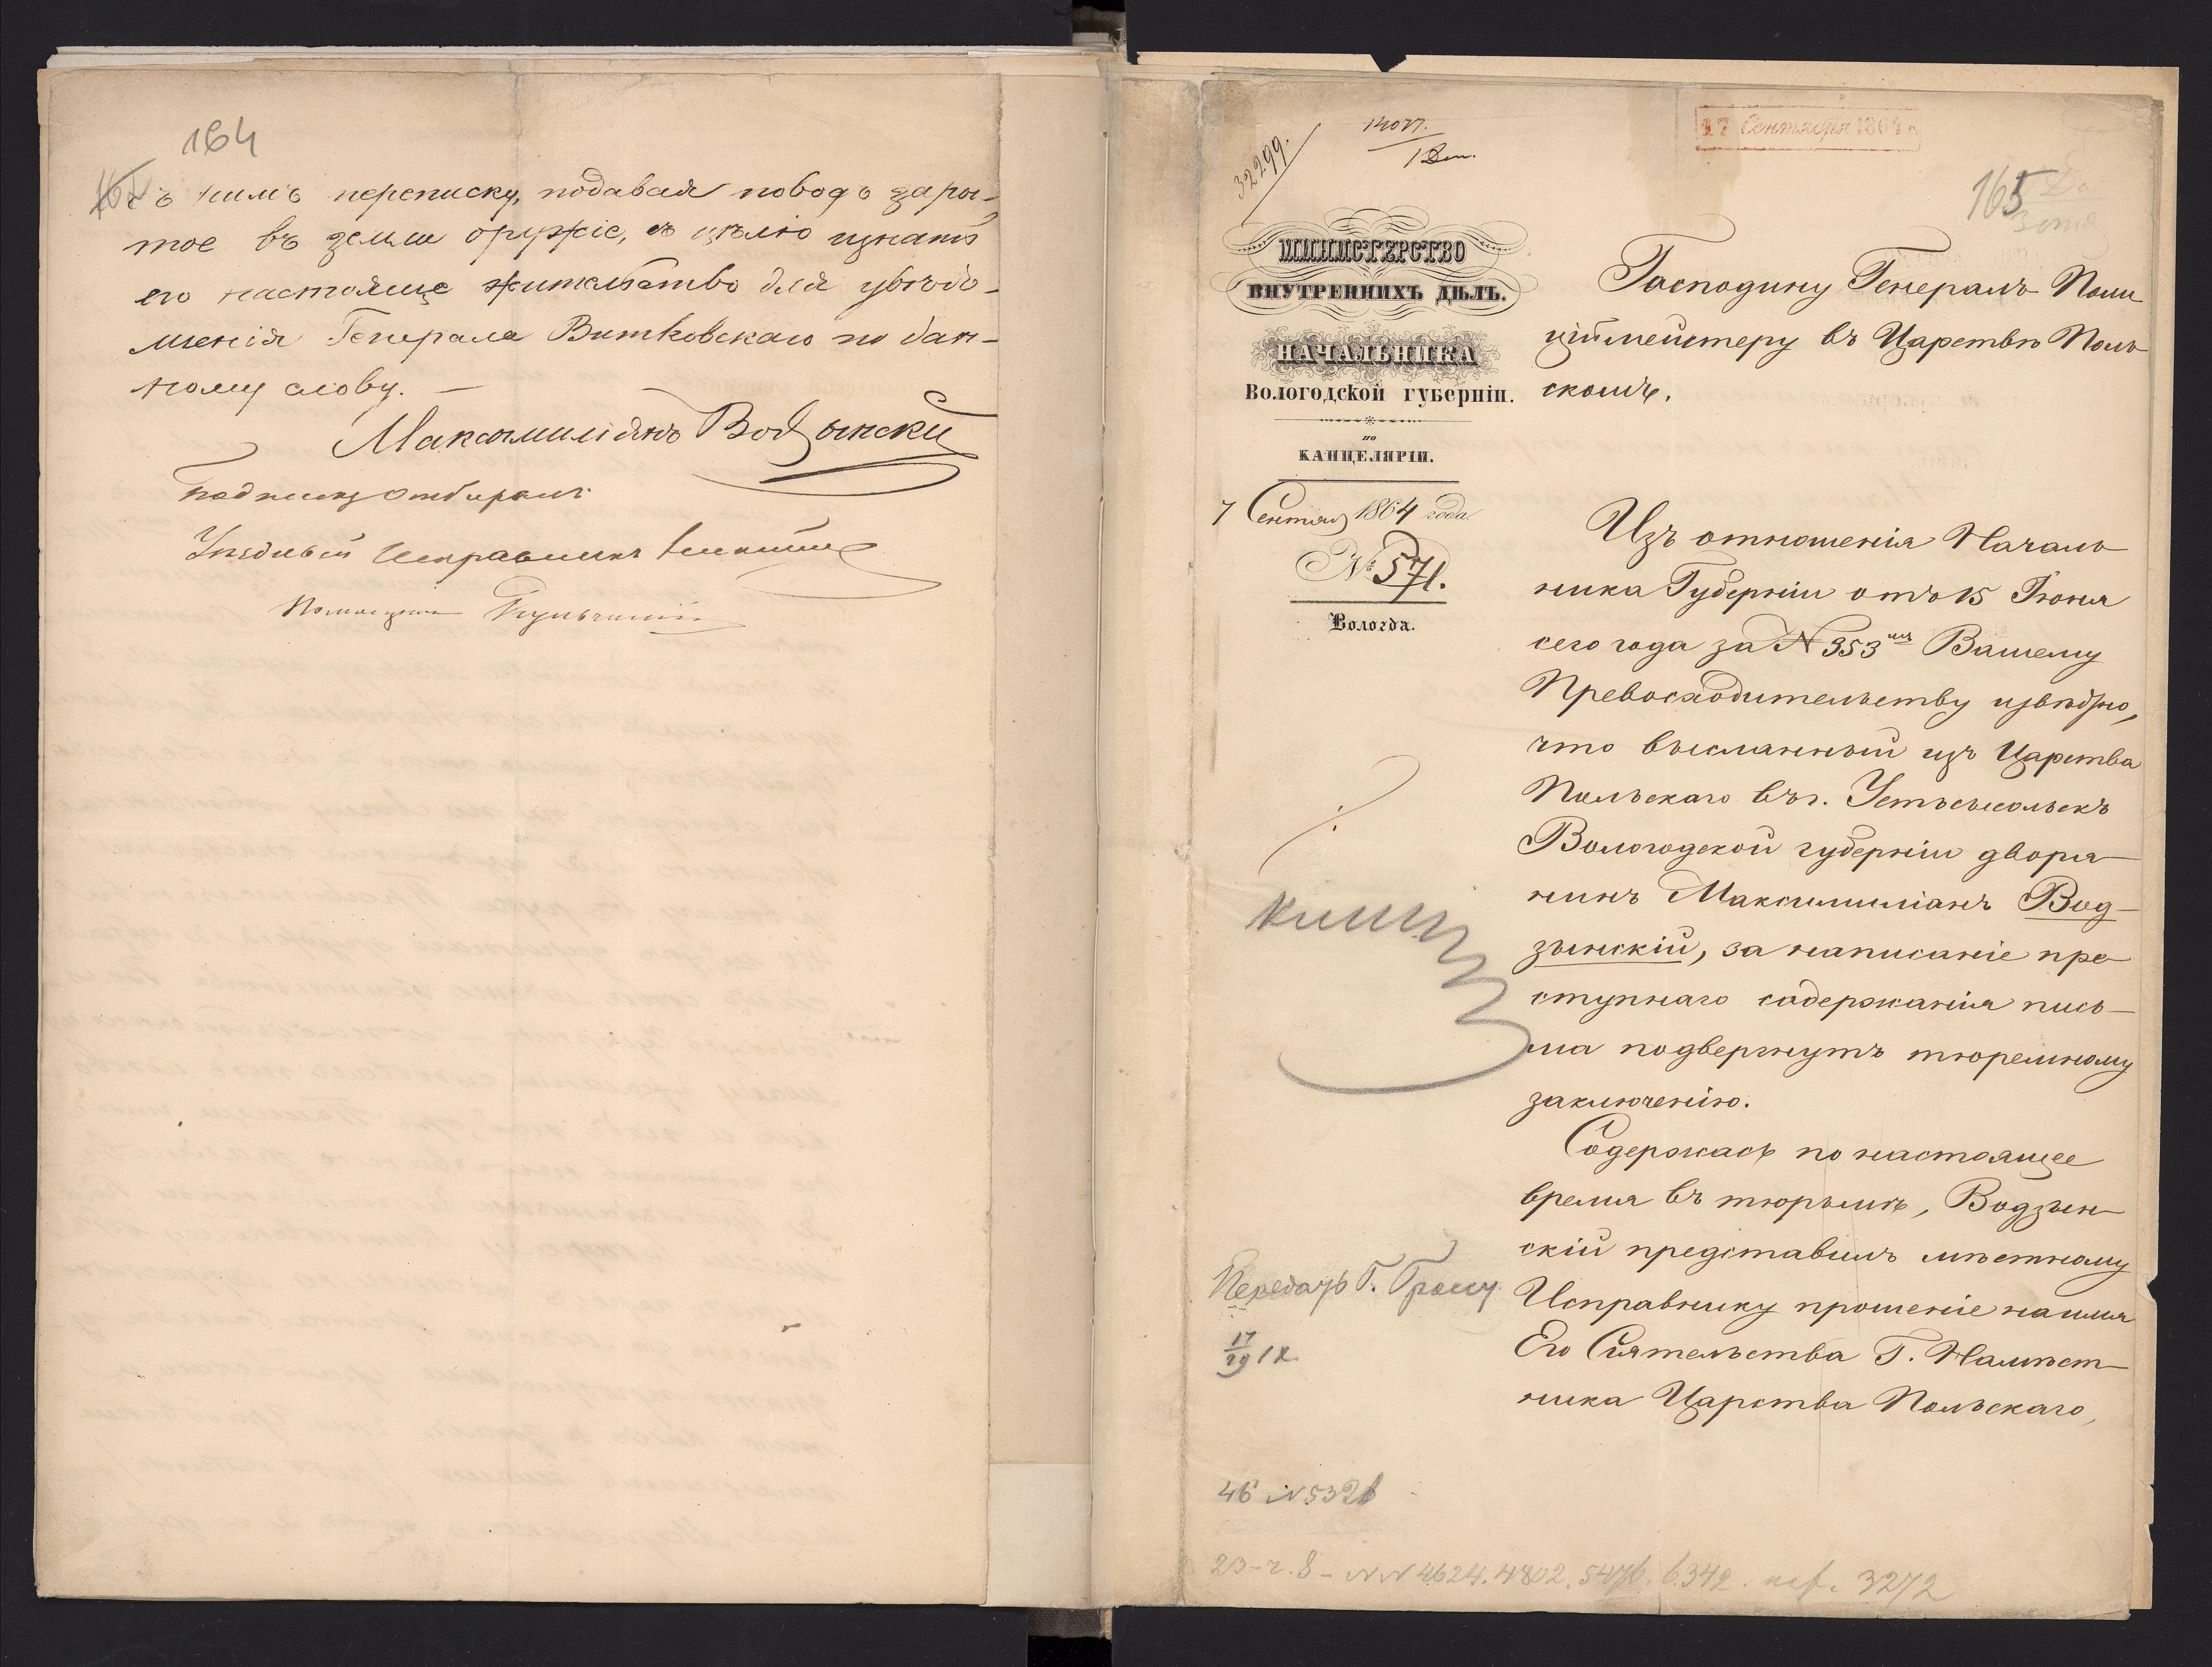 164
съ нимъ переписку, подавая поводъ зары-
тое въ земли оружіе, съ цѣлію узнать
его настояще жительство для увѣдо-
мленія Генерала Витковскаго по дан-
ному слову. —
Максимиліянъ Водзынский
Подписку отбиралъ
Уѣздный Исправникъ
Помощникъ
32299.
14077.
17 Сентября 1864 г.
165
МИНИСТЕРСТВО
ВНУТРЕННИХЪ ДѢЛЪ.
НАЧАЛЬНИКА
Вологодской губерніи.
по
КАНЦЕЛЯРІИ.
7 Сентяб 1864 года
№ 571.
Вологда.
Господину Генералъ Поли
ціймейстеру въ Царствѣ Поль
скомъ.
Изъ отношенія Началь-
ника Губерніи отъ 15 Іюня
сего года за № 353мъ Вашему
Превосходительству извѣстно,
что высланный изъ Царства
Польскаго въ г. Устьсысольскъ
Вологодской губерніи дворя-
нинъ Максимиліанъ Вод-
зынскій, за написаніе пре-
ступнаго содержанія пись-
ма подвергнутъ тюремному
заключенію.
Содержась по настоящее
время въ тюрьмѣ, Водзын-
скій представилъ мѣстному
Исправнику прошеніе на имя
Его Сіятельства Г. Намѣст-
ника Царства Польскаго,
Передать Г.
17/29 IX.
46 № 5326
23-г. 8 - № № 4624. 4802. 5476. 6342. 3272